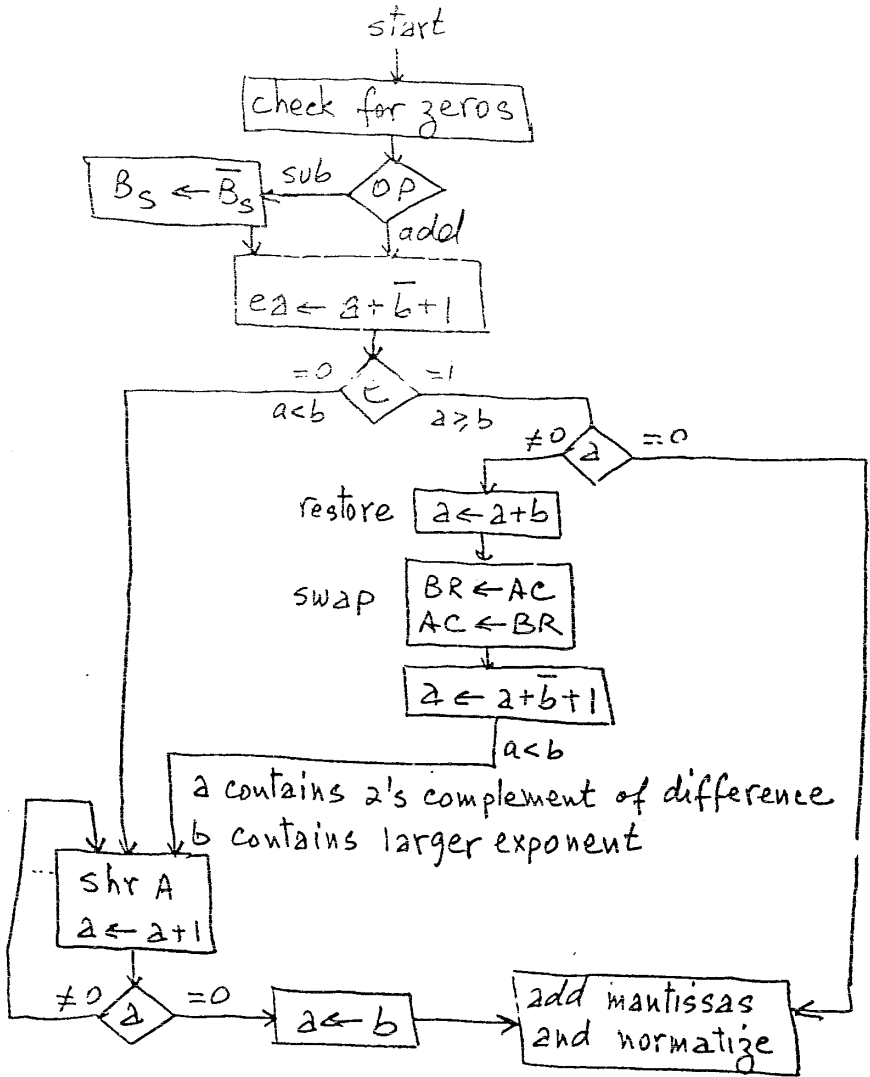 start
check for zeros
OP
sub
B_S ← B̅_S
add
ea ← a + b̅ + 1
=0
E
=1
a<b
a≥b
≠0
a
=0
restore
a ← a+b
swap
BR ← AC
AC ← BR
a ← a+b̅+1
a<b
a contains 2's complement of difference
b contains larger exponent
shr A
a ← a+1
≠0
a
=0
a ← b
add mantissas
and normatize